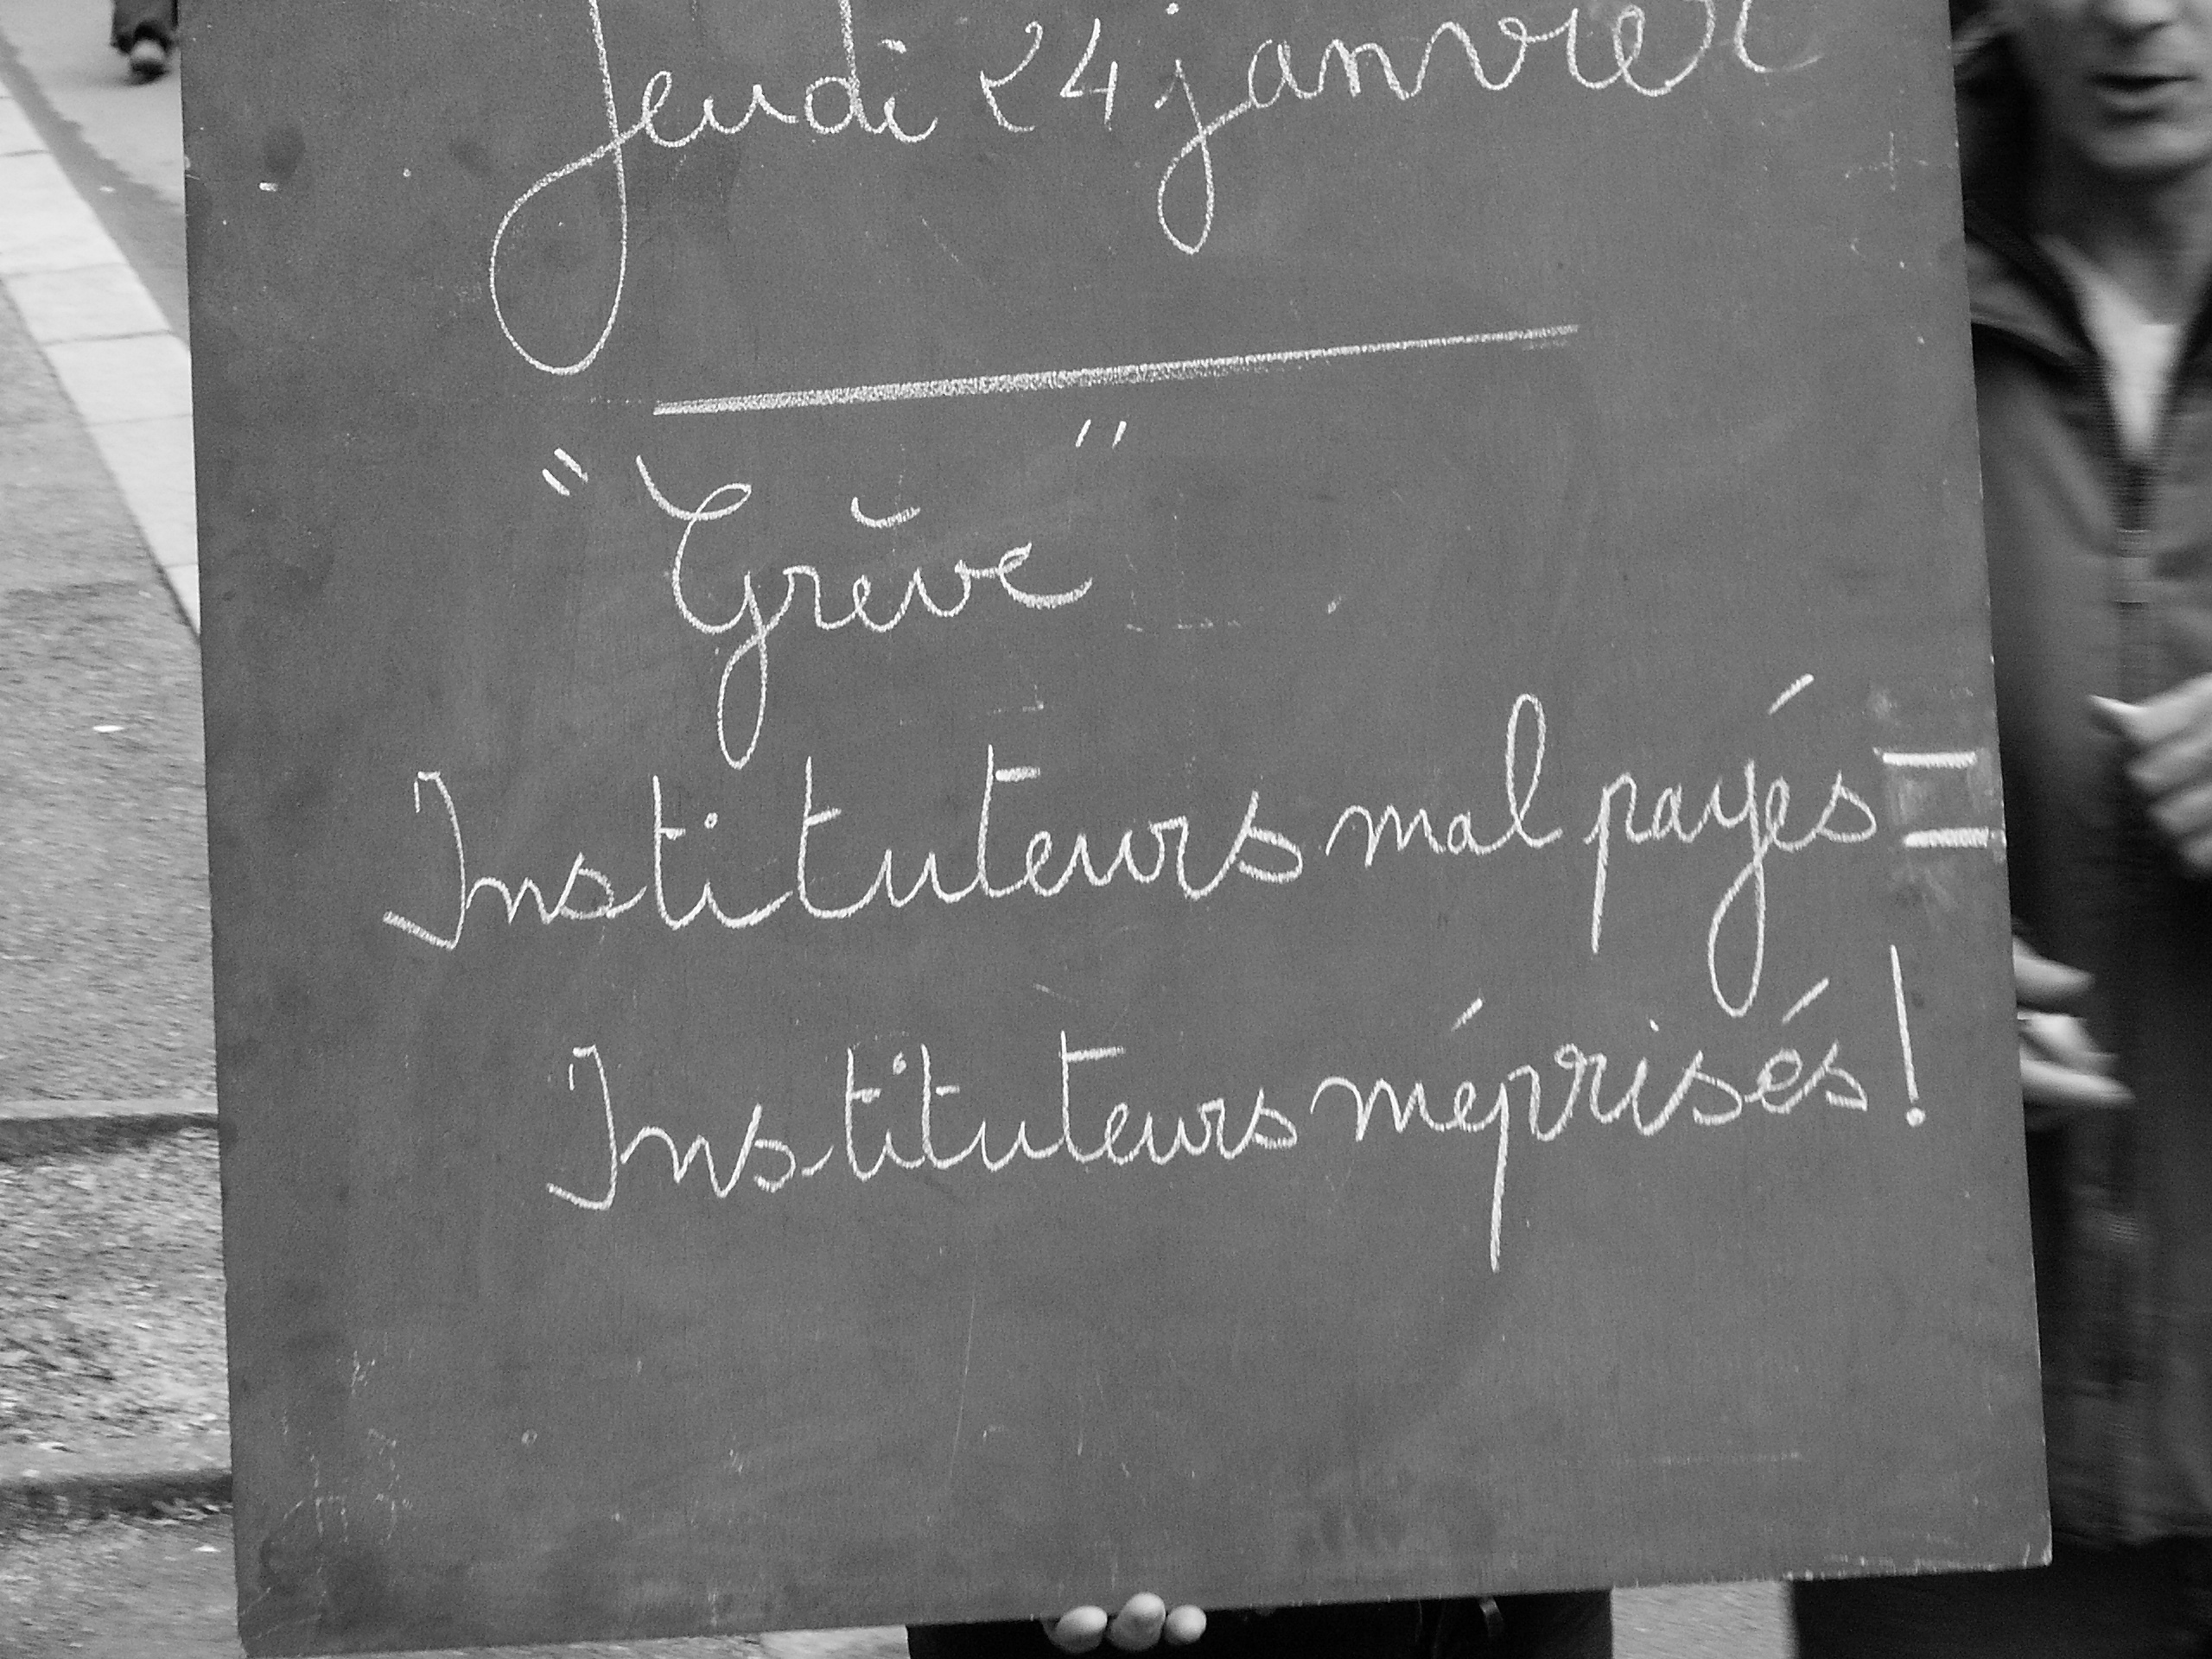 Jeudi 24 janvier
"Grève"
Instituteurs mal payés =
Instituteurs méprisés !